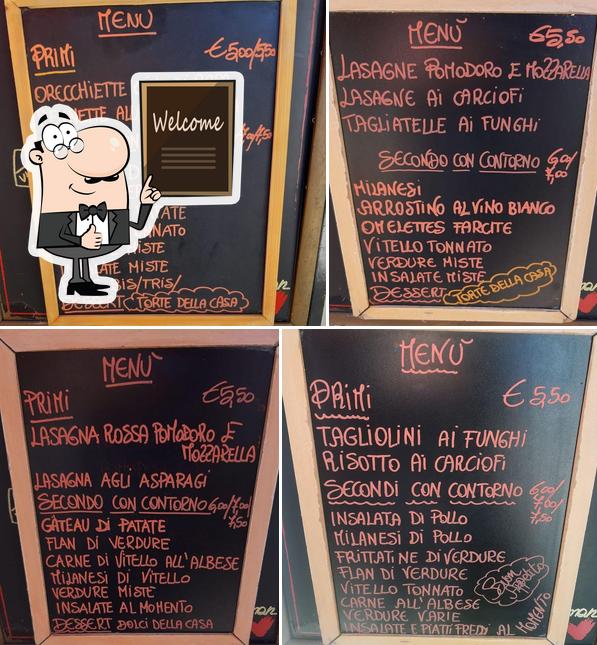 MENÙ
PRIMI €5,00/5,50
ORECCHIETTE
Welcome
MISTE
MISTE
TORTE DELLA CASA
MENÙ €5,50
LASAGNE POMODORO E MOZZARELLA
LASAGNE AI CARCIOFI
TAGLIATELLE AI FUNGHI
SECONDO CON CONTORNO 6,00/
7,00
MILANESI
ARROSTINO AL VINO BIANCO
OMELETTES FARCITE
VITELLO TONNATO
VERDURE MISTE
INSALATE MISTE
DESSERT TORTE DELLA CASA
MENÙ
PRIMI €5,50
LASAGNA ROSSA POMODORO E
MOZZARELLA
LASAGNA AGLI ASPARAGI
SECONDO CON CONTORNO 6,00/7,00/
7,50
GATEAU DI PATATE
FLAN DI VERDURE
CARNE DI VITELLO ALL'ALBESE
MILANESI DI VITELLO
VERDURE MISTE
INSALATE AL MOMENTO
DESSERT DOLCI DELLA CASA
MENÙ
PRIMI €5,50
TAGLIOLINI AI FUNGHI
RISOTTO AI CARCIOFI
SECONDI CON CONTORNO 6,00/
7,00/
7,50
INSALATA DI POLLO
MILANESI DI POLLO
FRITTATINE DI VERDURE
FLAN DI VERDURE
BUON APPETITO
VITELLO TONNATO
CARNE ALL'ALBESE
VERDURE VARIE
INSALATE E PIATTI FREDDI AL MOMENTO